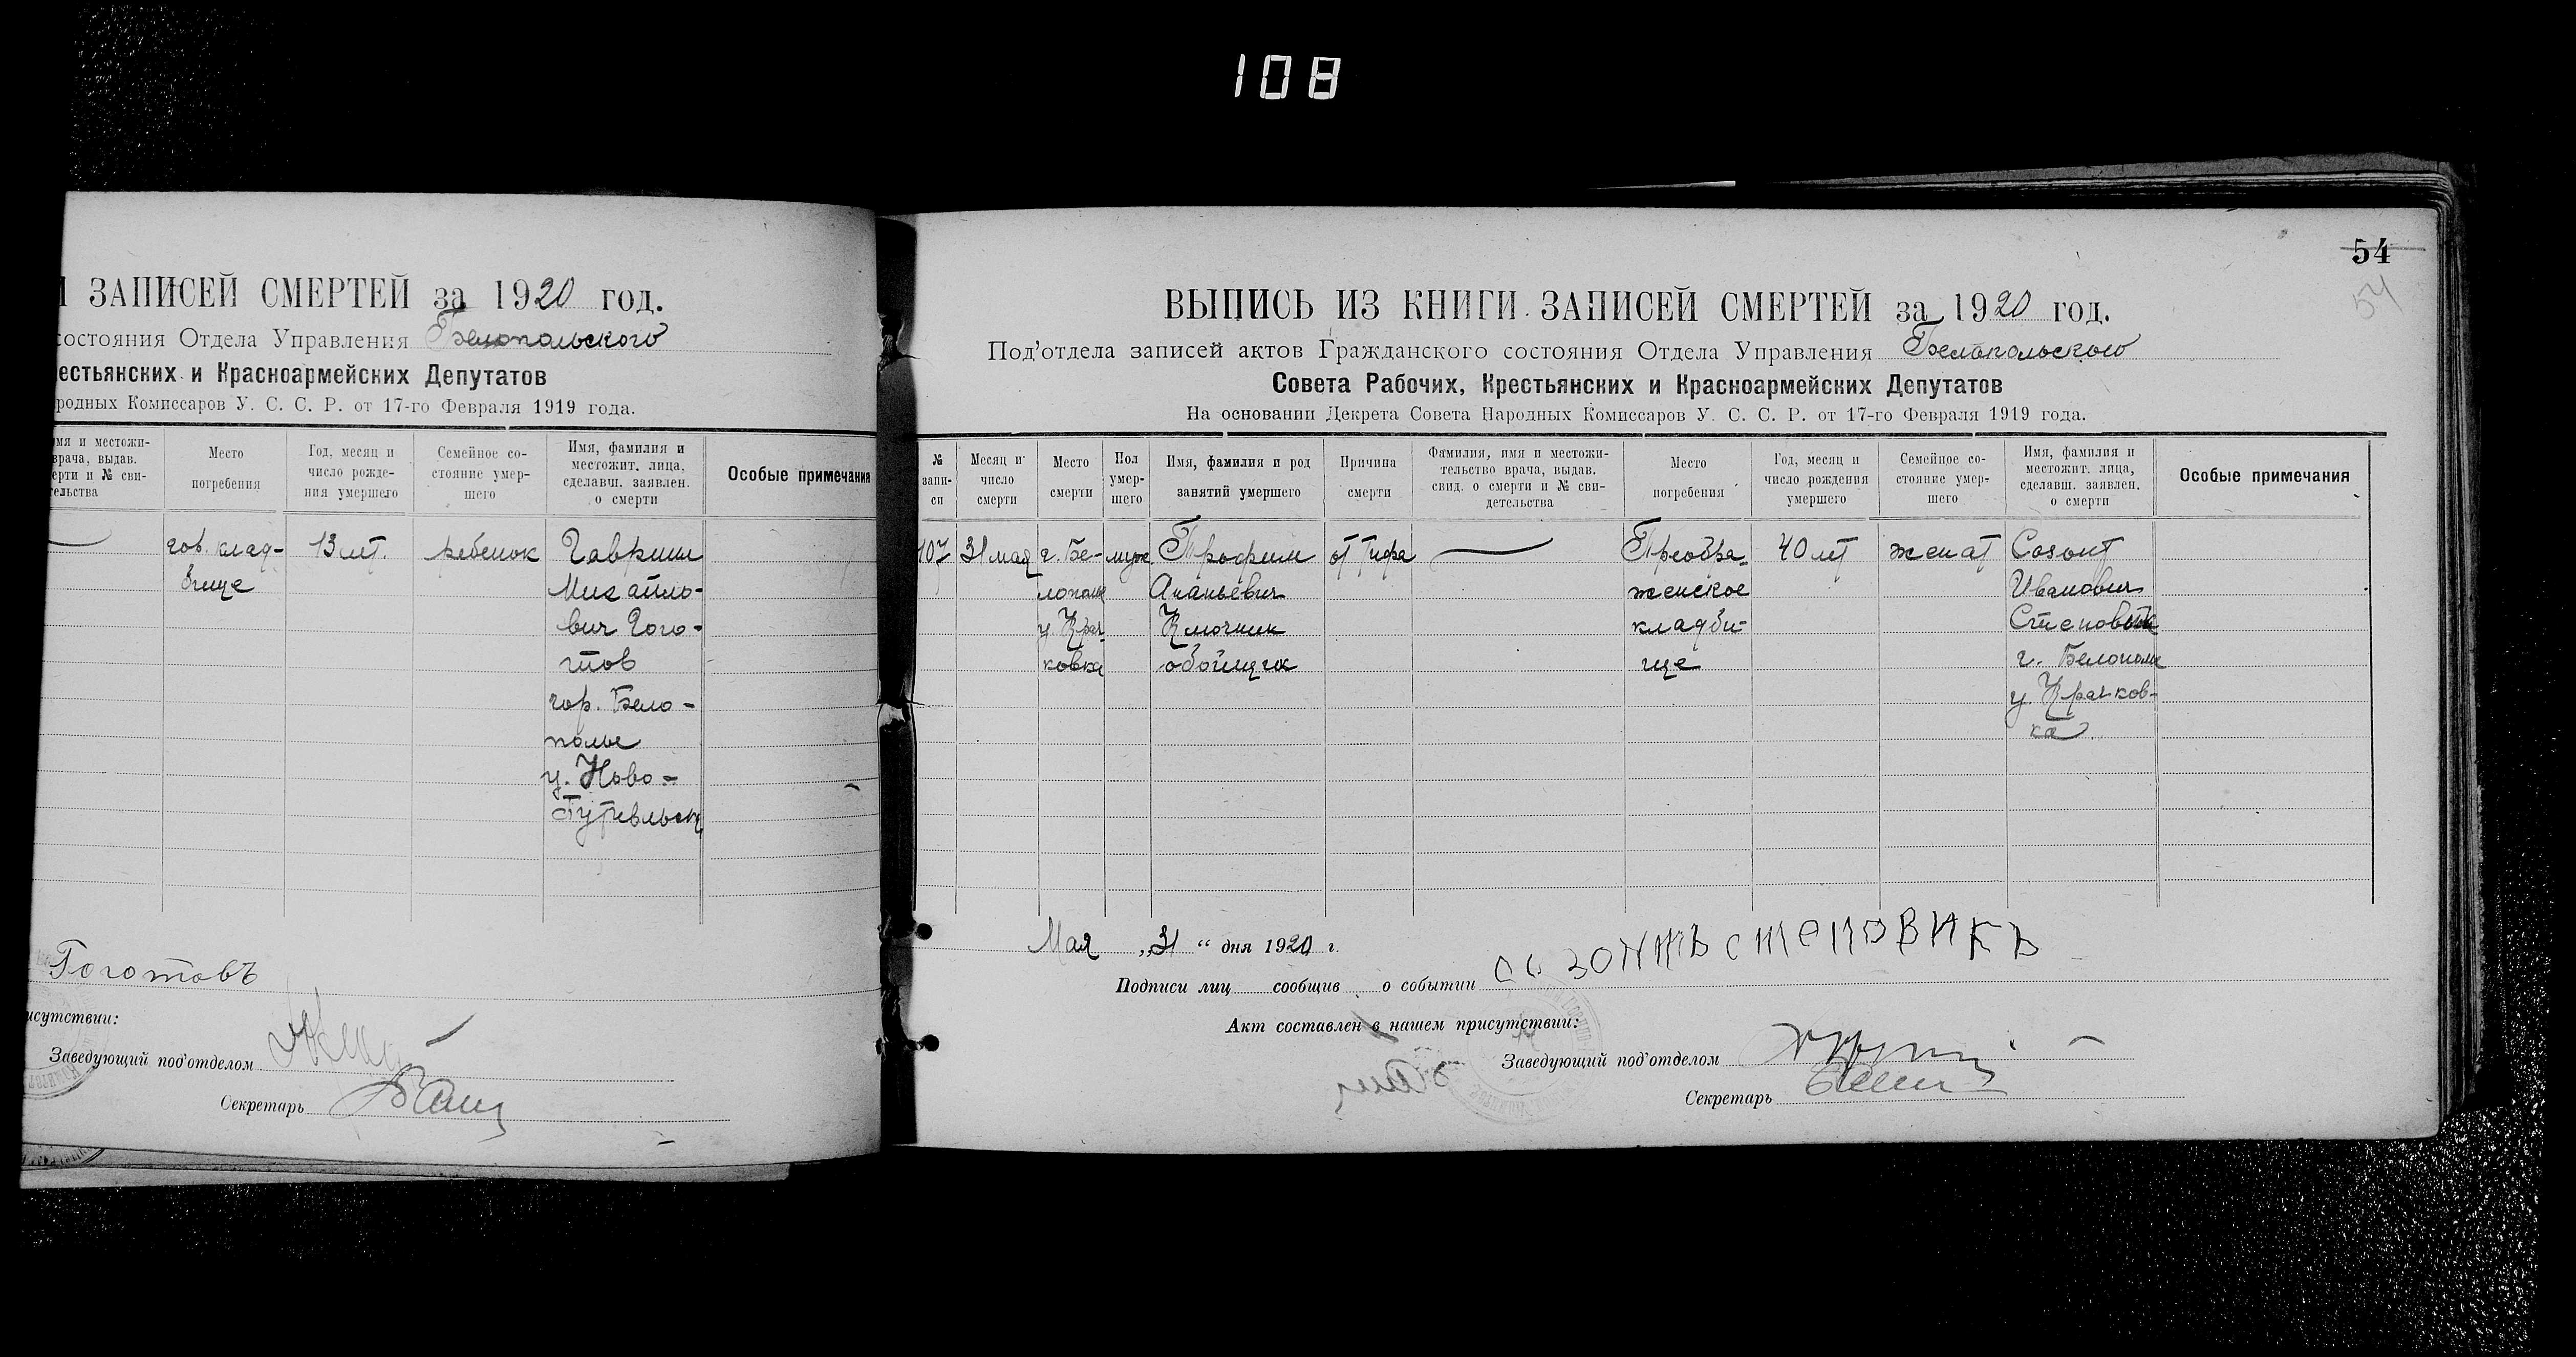 108
И ЗАПИСЕЙ СМЕРТЕЙ за 1920 год.
состояния Отдела Управления Белопольского
естьянских и Красноармейских Депутатов
родных Комиссаров У. С. С. Р. от 17-го Февраля 1919 года.
мя и местожи-
врача, выдав.
ерти и № сви-
тельства
Место
погребения
Год, месяц и
число рожде-
ния умершего
Семейное со-
стояние умер-
шего
Имя, фамилия и
местожит. лица,
сделавш. заявлен.
о смерти
Особые примечания
гор. клад-
бище
13 лет.
ребенок
Гавриил
Михайло-
вич Гого-
тов
гор. Бело-
полье
у. Ново-
Путивльск
Гоготовъ
исутствии:
Заведующий под'отделом
Секретарь
54
54
ВЫПИСЬ ИЗ КНИГИ ЗАПИСЕЙ СМЕРТЕЙ за 1920 год.
Под'отдела записей актов Гражданского состояния Отдела Управления Белопольского
Совета Рабочих, Крестьянских и Красноармейских Депутатов
На основании Декрета Совета Народных Комиссаров У. С. С. Р. от 17-го Февраля 1919 года.
№
запи-
си
Месяц и
число
смерти
Место
смерти
Пол
умер-
шего
Имя, фамилия и род
занятий умершего
Причина
смерти
Фамилия, имя и местожи-
тельство врача, выдав.
свид. о смерти и № сви-
детельства
Место
погребения
Год, месяц и
число рождения
умершего
Семейное со-
стояние умер-
шего
Имя, фамилия и
местожит. лица,
сделавш. заявлен.
о смерти
Особые примечания
107
31 мая
г. Бе-
лополье
у. Крач-
ковка
муж.
Трофим
Ананьевич
Ключник
обойщик
от Тифа
Преобра-
женское
кладби-
ще
40 лет
женат
Созонт
Иванович
Степовик
г. Белополье
у. Крачков-
ка
Мая „31“ дня 1920 г.
Подписи лиц сообщив о событии СОЗОНТЪ СТЕПОВИКЪ
Акт составлен в нашем присутствии:
Заведующий под'отделом
Секретарь